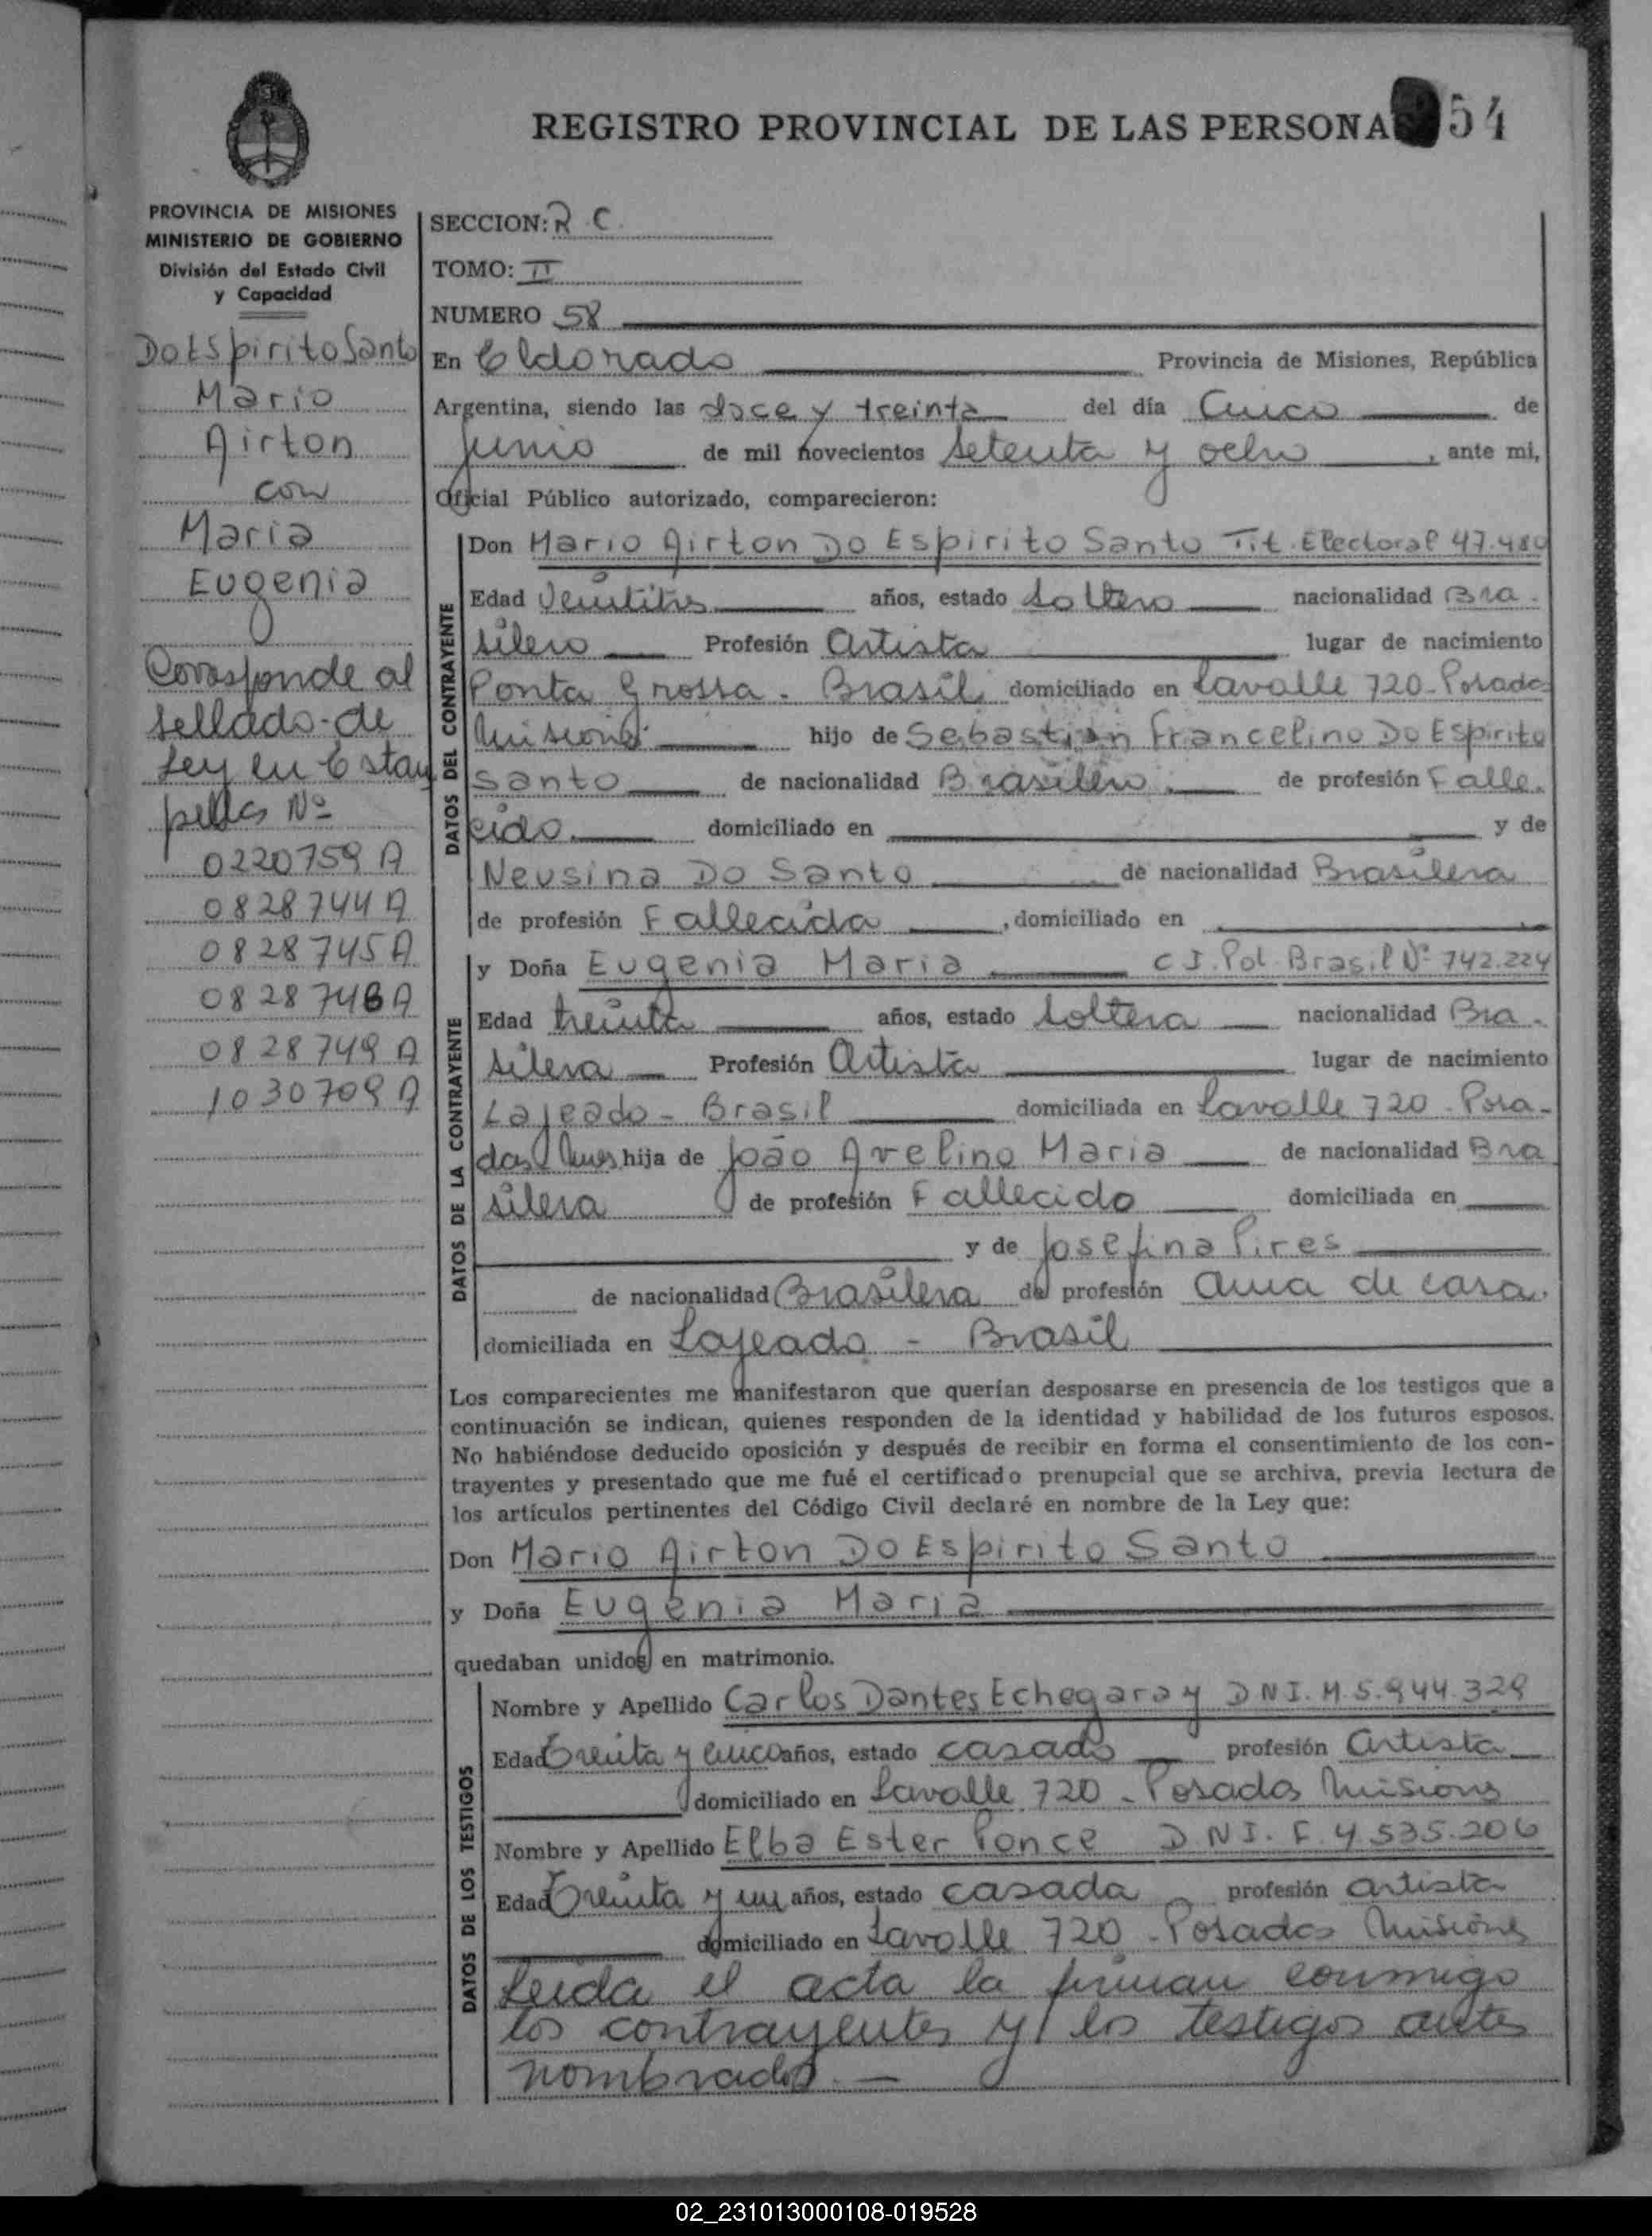 REGISTRO PROVINCIAL DE LAS PERSONA 54
PROVINCIA DE MISIONES
MINISTERIO DE GOBIERNO
División del Estado Civil
y Capacidad
Do Espirito Santo
Mario
Airton
con
Maria
Eugenia
Corresponde al
sellado de
Ley en Estam
pillas Nº
0220759 A
0828744 A
0828745 A
0828746 A
0828749 A
1030709 A
SECCION: R.C.
TOMO: II
NUMERO 58
En Eldorado Provincia de Misiones, República
Argentina, siendo las doce y treinta del día Cinco de
Junio de mil novecientos setenta y ocho, ante mi,
Oficial Público autorizado, comparecieron:
DATOS DEL CONTRAYENTE
Don Mario Airton Do Espirito Santo Tit. Electoral 47.480
Edad Veintitres años, estado Soltero nacionalidad Bra-
silero Profesión Artista lugar de nacimiento
Ponta Grossa - Brasil domiciliado en Lavalle 720 - Posadas
Misiones hijo de Sebastian Francelino Do Espirito
Santo de nacionalidad Brasilero de profesión Falle-
cido domiciliado en y de
Neusina Do Santo de nacionalidad Brasilera
de profesión Fallecida, domiciliado en
DATOS DE LA CONTRAYENTE
y Doña Eugenia Maria C.I. Pol. Brasil Nº 742.224
Edad treinta años, estado Soltera nacionalidad Bra-
silera Profesión Artista lugar de nacimiento
Lajeado - Brasil domiciliada en Lavalle 720 - Posa-
das Mnes hija de João Avelino Maria de nacionalidad Bra
silera de profesión Fallecido domiciliada en
y de Josefina Pires
de nacionalidad Brasilera de profesión Ama de casa.
domiciliada en Lajeado - Brasil
Los comparecientes me manifestaron que querían desposarse en presencia de los testigos que a
continuación se indican, quienes responden de la identidad y habilidad de los futuros esposos.
No habiéndose deducido oposición y después de recibir en forma el consentimiento de los con-
trayentes y presentado que me fué el certificado prenupcial que se archiva, previa lectura de
los artículos pertinentes del Código Civil declaré en nombre de la Ley que:
Don Mario Airton Do Espirito Santo
y Doña Eugenia Maria
quedaban unidos en matrimonio.
DATOS DE LOS TESTIGOS
Nombre y Apellido Carlos Dantes Echegaray D N I. M. 5.944.329
Edad Treinta y cinco años, estado casado profesión Artista
domiciliado en Lavalle 720 - Posadas Misiones
Nombre y Apellido Elba Ester Ponce D.N I. F. 4.535.206
Edad Treinta y un años, estado casada profesión artista
domiciliado en Lavalle 720 - Posadas Misiones
Leida el acta la firman conmigo
los contrayentes y los testigos antes
nombrados. —
02_231013000108-019528